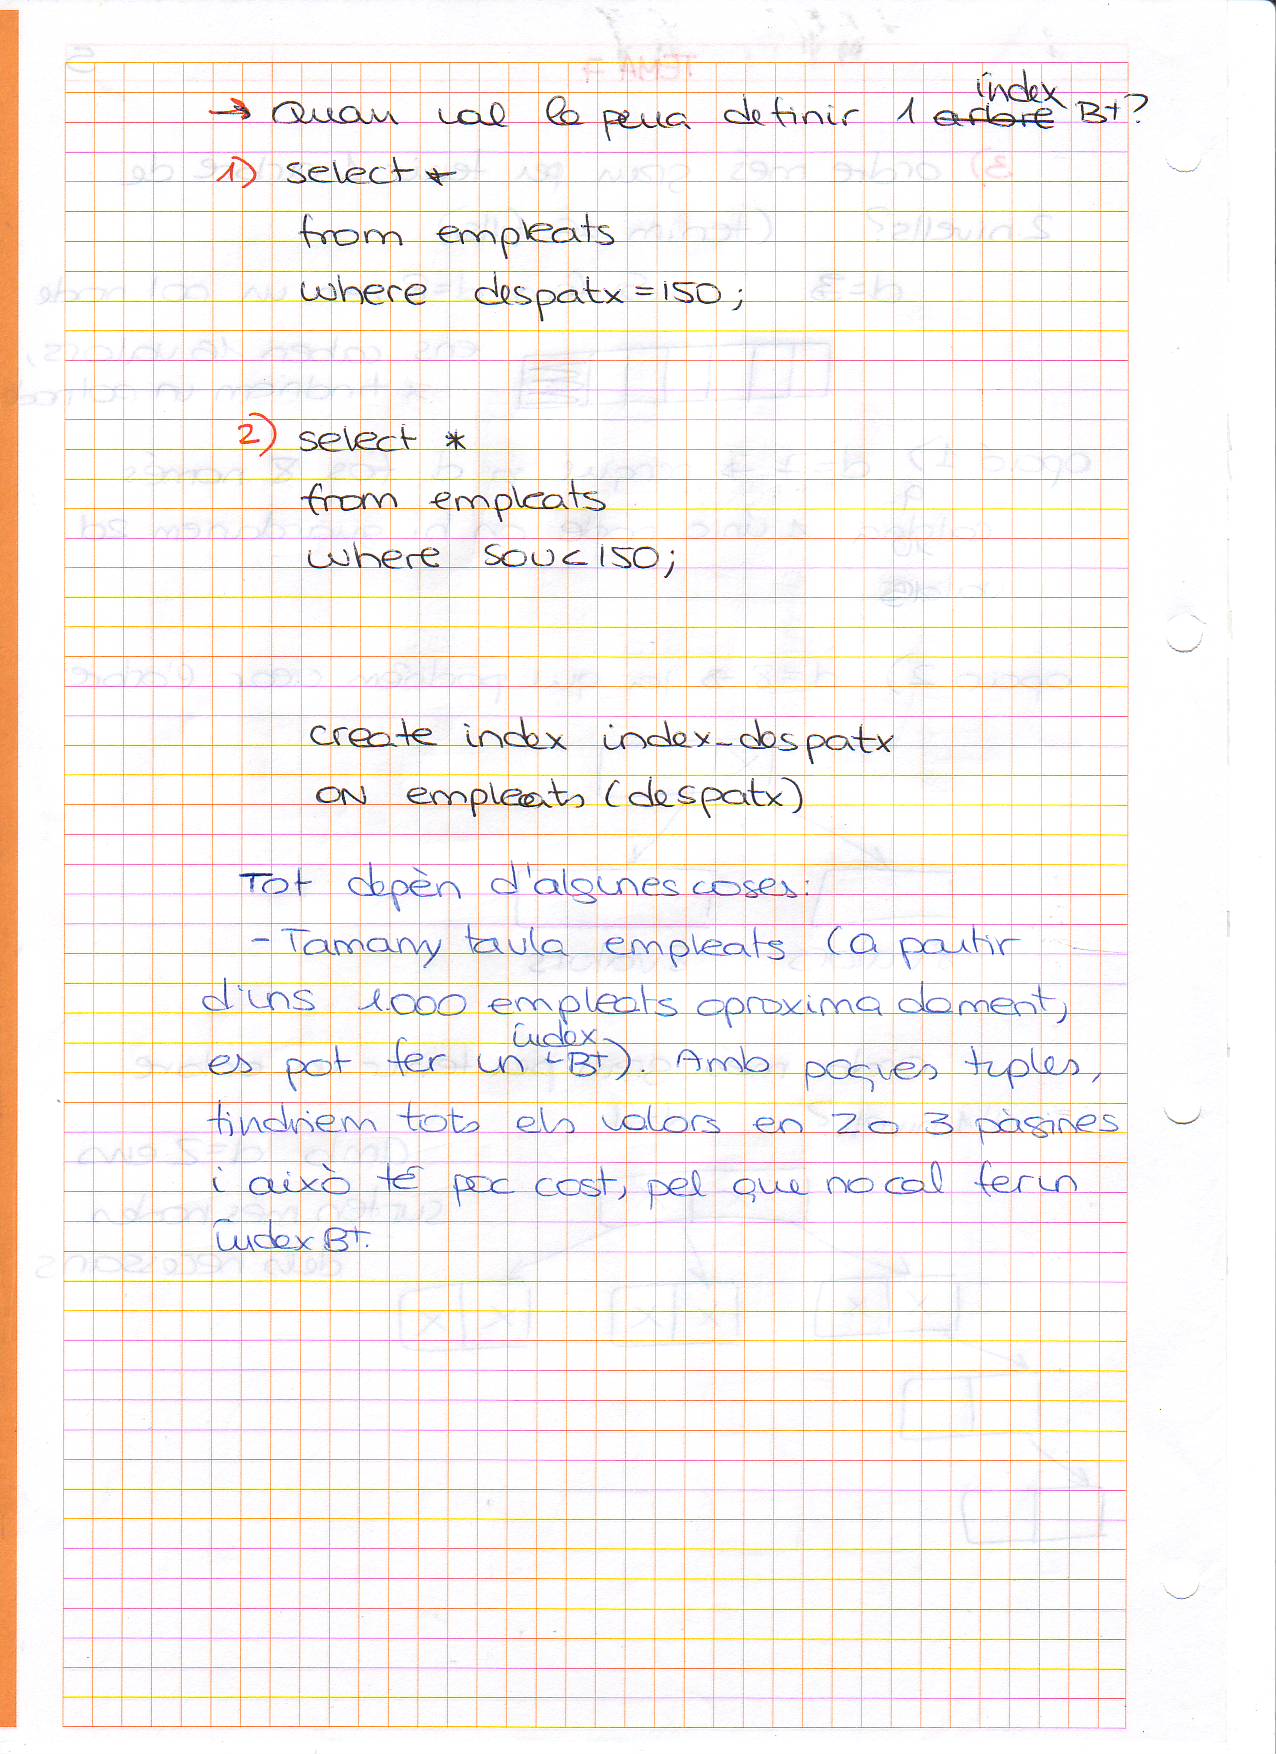 → Quan val la pena definir 1 índex B+?
1) select *
from empleats
where despatx = 150;
2) select *
from empleats
where sou < 150;
create index index_despatx
ON empleats (despatx)
Tot depèn d'algunes coses:
- Tamany taula empleats (a partir
d'uns 1.000 empleats aproximadament,
es pot fer un índex B+). Amb poques tuples,
tindriem tots els valors en 2 o 3 pàgines
i això té poc cost, pel que no cal fer un
índex B+.